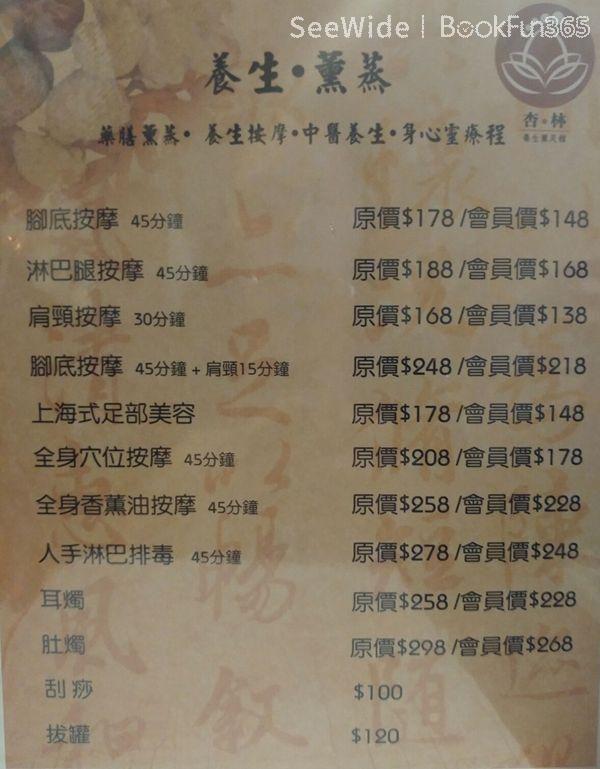 SeeWide | BookFun365
養生•薰蒸
藥膳薰蒸• 養生按摩•中醫養生•身心靈療程
杏•林
腳底按摩 45分鐘 原價$178 /會員價$148
淋巴腿按摩 45分鐘 原價$188 /會員價$168
肩頸按摩 30分鐘 原價$168 /會員價$138
腳底按摩 45分鐘 + 肩頸15分鐘 原價$248 /會員價$218
上海式足部美容 原價$178 /會員價$148
全身穴位按摩 45分鐘 原價$208 /會員價$178
全身香薰油按摩 45分鐘 原價$258 /會員價$228
人手淋巴排毒 45分鐘 原價$278 /會員價$248
耳燭 原價$258 /會員價$228
肚燭 原價$298 /會員價$268
刮痧 $100
拔罐 $120